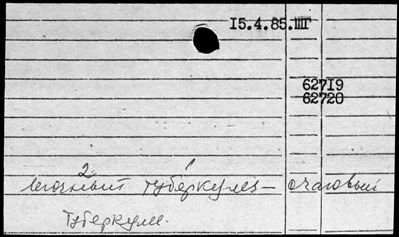 15.4.85.ШГ
62719
62720
2 1
легочный туберкулез — очаговый
туберкулез.